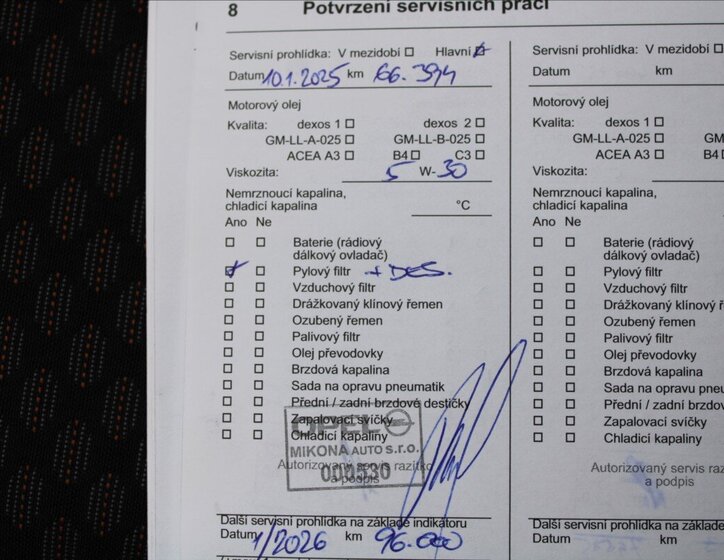 8 Potvrzení servisních prací
Servisní prohlídka: V mezidobí ☐ Hlavní ☒
Datum 10.1.2025 km 66.394
Motorový olej
Kvalita: dexos 1 ☐ dexos 2 ☐
GM-LL-A-025 ☐ GM-LL-B-025 ☐
ACEA A3 ☐ B4 ☐ C3 ☐
Viskozita: 5 W-30
Nemrznoucí kapalina,
chladicí kapalina °C
Ano Ne
☐ ☐ Baterie (rádiový
dálkový ovladač)
☒ ☐ Pylový filtr + DES.
☐ ☐ Vzduchový filtr
☐ ☐ Drážkovaný klínový řemen
☐ ☐ Ozubený řemen
☐ ☐ Palivový filtr
☐ ☐ Olej převodovky
☐ ☐ Brzdová kapalina
☐ ☐ Sada na opravu pneumatik
☐ ☐ Přední / zadní brzdové destičky
☐ ☐ Zapalovací svíčky
☐ ☐ Chladicí kapaliny
OPEL
MIKONA AUTO s.r.o.
Autorizovaný servis razítko
a podpis
000530
Další servisní prohlídka na základě indikátoru
Datum 1/2026 km 96.000
Servisní prohlídka: V mezidobí ☐
Datum km
Motorový olej
Kvalita: dexos 1 ☐
GM-LL-A-025 ☐ GM
ACEA A3 ☐
Viskozita:
Nemrznoucí kapalina,
chladicí kapalina
Ano Ne
☐ ☐ Baterie (rádiový
dálkový ovladač)
☐ ☐ Pylový filtr
☐ ☐ Vzduchový filtr
☐ ☐ Drážkovaný klínový ř
☐ ☐ Ozubený řemen
☐ ☐ Palivový filtr
☐ ☐ Olej převodovky
☐ ☐ Brzdová kapalina
☐ ☐ Sada na opravu pne
☐ ☐ Přední / zadní brzdov
☐ ☐ Zapalovací svíčky
☐ ☐ Chladicí kapaliny
Autorizovaný servis raz
a podpis
Další servisní prohlídka na základě
Datum km